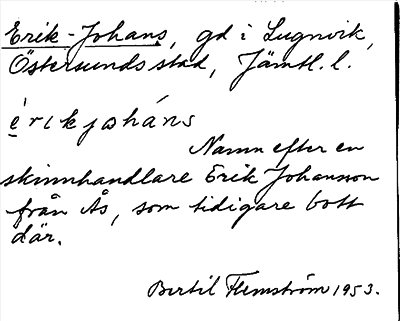 Erik-Johans, gd i Lugnvik,
Östersunds stad, Jämtl. l.
èrikjoháns
Namn efter en
skinnhandlare Erik Johansson
från Ås, som tidigare bott
där.
Bertil Flemström 1953.